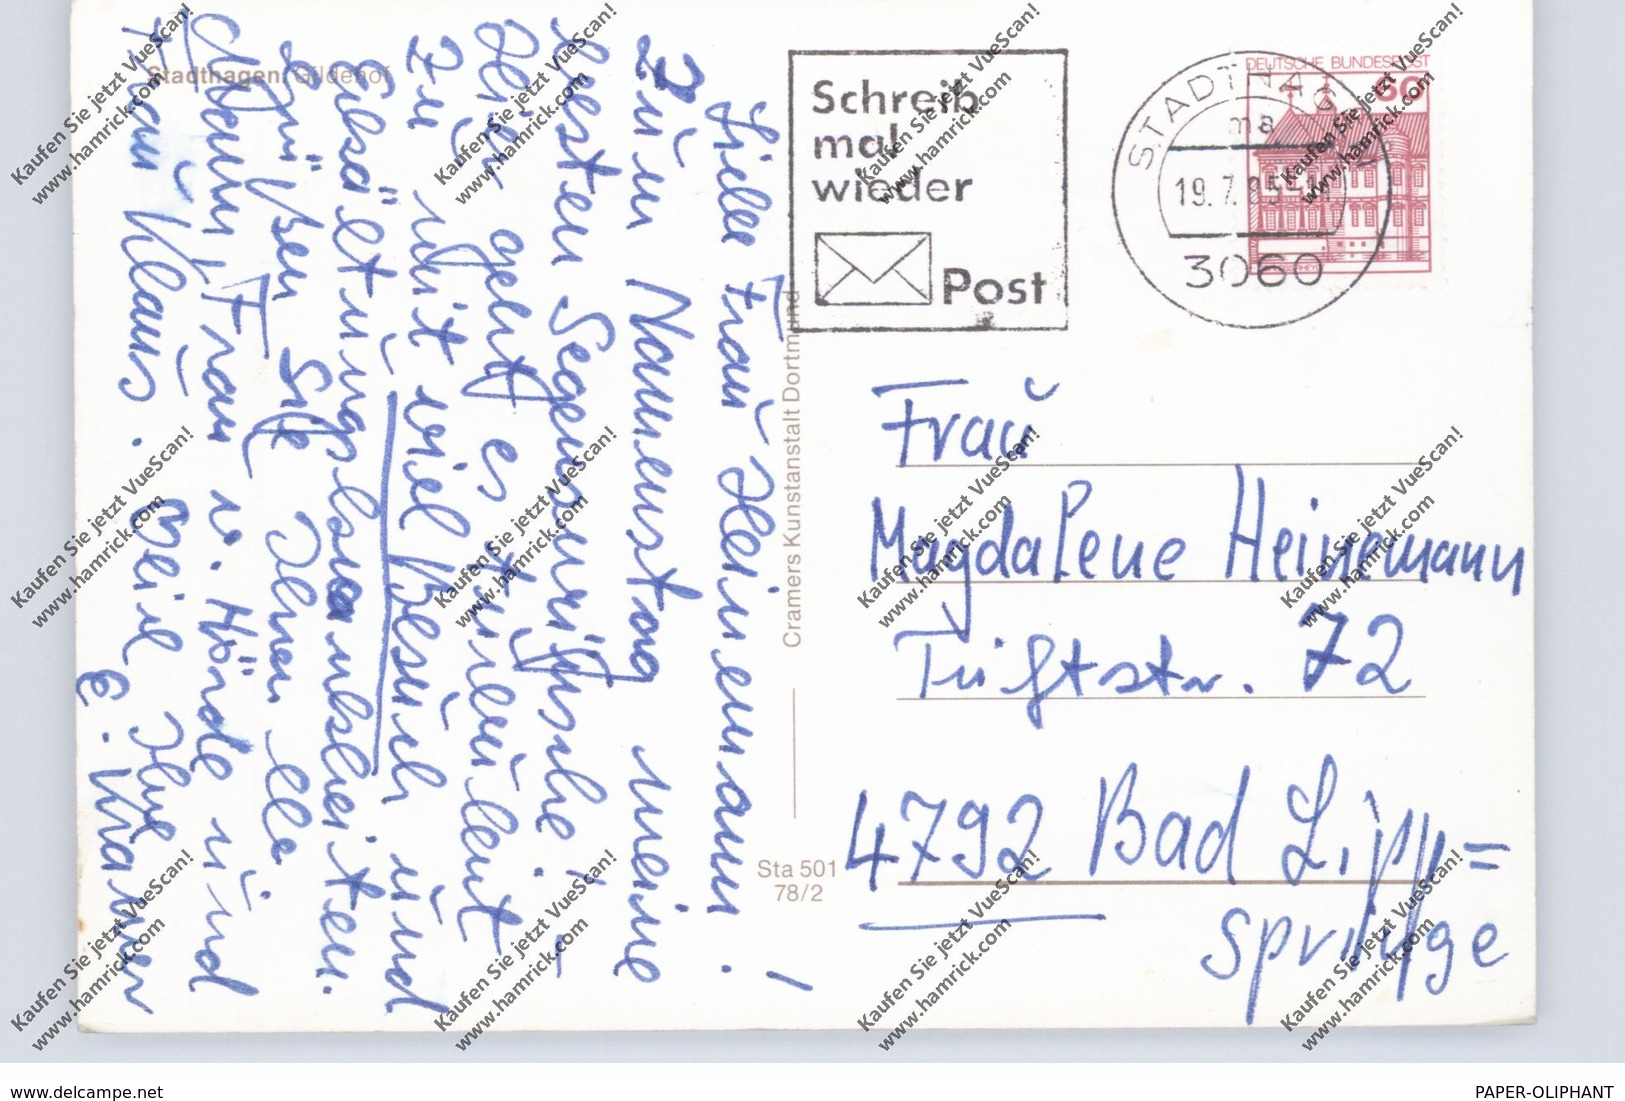 Stadthagen, Gildehof
Liebe Frau Heinemann!
Zum Namenstag meine
besten Segenswünsche.
Hier geht es turbulent
zu mit viel Besuch und
Erkältungskrankheiten.
Grüßen Sie Ihnen alle
Mann, Frau v. Hörde und
Frau Klaus. Weil Ihre
E. Kramer
Cramers Kunstanstalt Dortmund
Sta 501
78/2
Schreib
mal
wieder
Post
STADTHAGEN
ma
19.7.85
3060
DEUTSCHE BUNDESPOST
60
Frau
Magdalene Heinemann
Triftstr. 72
4792 Bad Lipp=
springe
Kaufen Sie jetzt VueScan!
www.hamrick.com
www.delcampe.net
PAPER-OLIPHANT